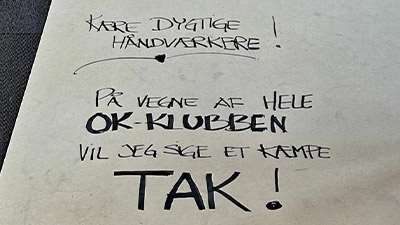 KÆRE DYGTIGE
HÅNDVÆRKERE!
PÅ VEGNE AF HELE
OK-KLUBBEN
VIL JEG SIGE ET KÆMPE
TAK!